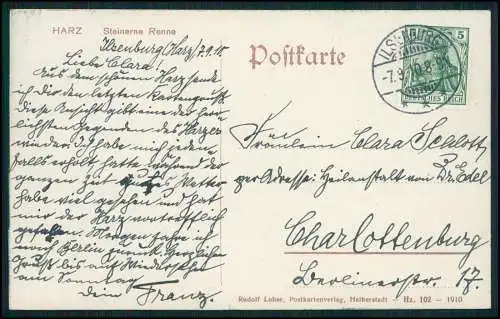 HARZ Steinerne Renne
Ilsenburg (Harz) 7.9.10.
Liebe Clara!
Aus dem schönen Harz sende
ich Dir den letzten Kartengruß
diese Ansicht gibt eine der herr
lichsten Gegenden des Harzes
wieder. Ich habe mich jeden
falls erholt hatte während der
ganzen Zeit gutes Wetter
habe viel gesehen und hat
mir der Harz vortrefflich
gefallen. Morgen fahre ich
nach Berlin zurück. Herzlichen
Gruß bis auf Wiedersehn
am Sonntag
Dein Franz.
Postkarte
ILSENBURG
-7.9.10.8-9
5
DEUTSCHES REICH
Fräulein Clara Schlott,
per Adresse: Heilanstalt von Dr. Edel
Charlottenburg
Berlinerstr. 17.
Rudolf Lobse, Postkartenverlag, Halberstadt – Hz. 102 – 1910